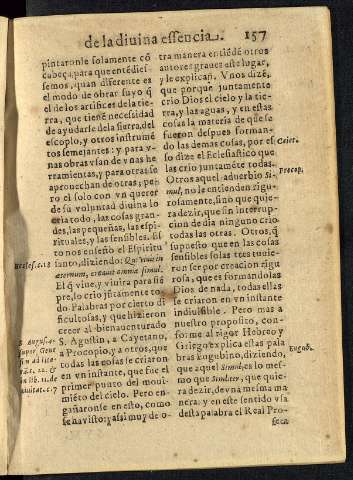 de la diuina essencia. 157
pintaronle solamente cõ
cabeça, para que entẽdies-
semos, quan diferente es
el modo de obrar suyo q̃
el de los artifices de la tie-
rra, que tiene necessidad
de ayudarse de la sierra, del
escoplo, y otros instrumẽ
tos semejantes: y para v-
nas obras vsan de vnas he
rramientas, y para otras se
aprouechan de otras; pe-
ro el solo con vn querer
de su voluntad diuina lo
cria todo, las cosas gran-
des, las pequeñas, las espi-
rituales, y las sensibles. Es
to nos enseñò el Espiritu
santo, diziendo: Qui viuit in
æternum, creauit omnia simul.
El q̃ viue, y viuira para siẽ
pre, lo criò jũtamente to-
do. Palabras por cierto di
ficultosas, y que hizieron
creer al bienauenturado
S. Agustin, a Cayetano,
a Procopio, y a otros, que
todas las cosas se criaron
en vn instante, que fue el
primer punto del moui-
miẽto del cielo. Pero en-
gañaronse en esto, como
se ha visto: y assi muy de o-
Eccles. c. 18
S. August. 4.
super Genes.
tra manera entiẽdẽ otros
autores graues este lugar,
y le explican. Vnos dizẽ,
que porque juntamente
crio Dios el cielo y la tie-
rra, y las aguas, y en estas
cosas la materia de que se
fueron despues forman-
do las demas cosas, por es
so dize el Eclesiastico que
las crio juntamẽte todas.
Otros aquel aduerbio Si-
mul, no le entienden rigu-
rosamente, sino que quie-
ra dezir, que sin interrup-
cion de dia ninguno crio
todas las otras. Otros, q̃
supuesto que en las cosas
sensibles solas tres tuuie-
ron ser por creacion rigu
rosa, que es formandolas
Dios de nada, todas ellas
se criaron en vn instante
indiuisible. Pero mas a
nuestro proposito, con-
forme al rigor Hebreo y
Griego explica estas pala
bras Eugubino, diziendo,
que aquel Simul, es lo mes-
mo que Similiter, que quie-
ra dezir, de vna mesma ma
nera: y en este sentido vsa
desta palabra el Real Pro-
feta
Caiet.
Procop.
Eugub.